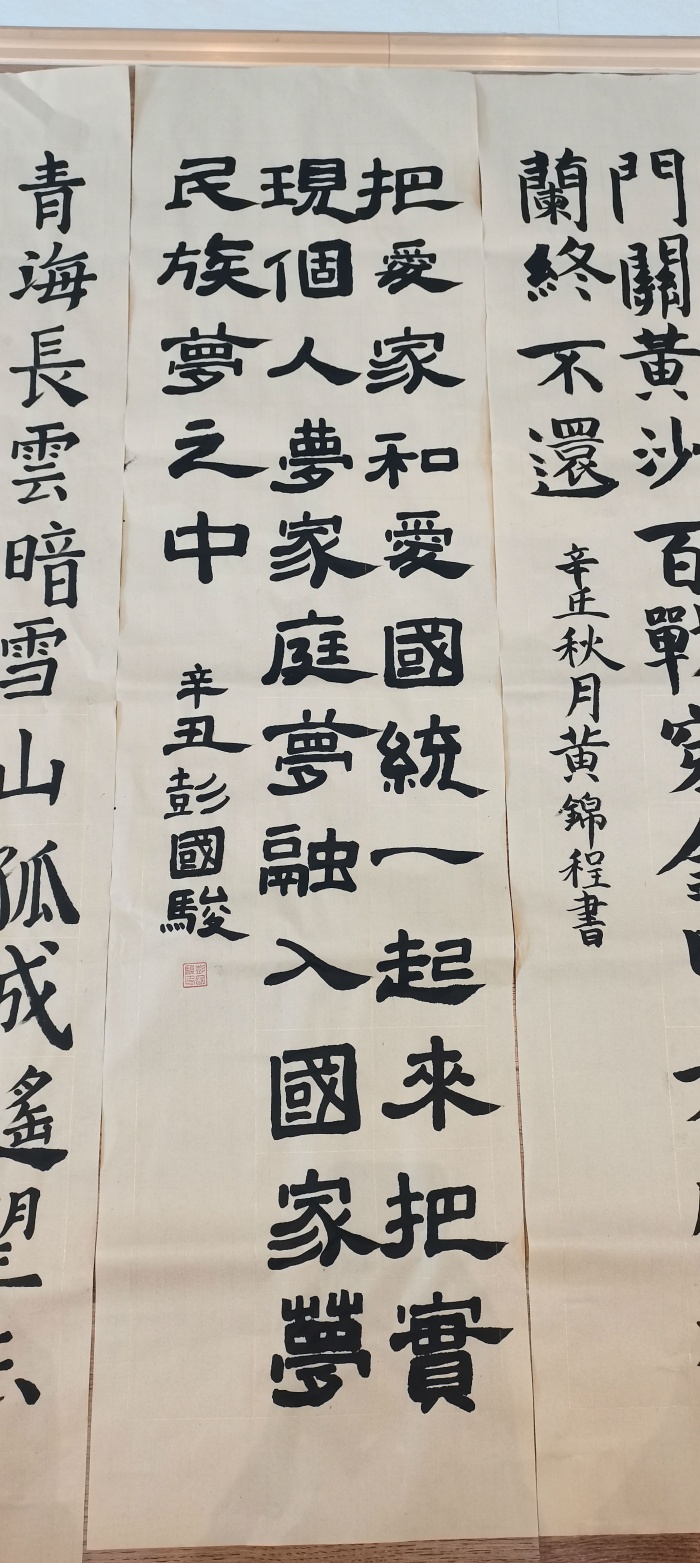 門關黃沙百戰穿金
蘭終不還
辛丑秋月黃錦程書
把愛家和愛國統一起來把實
現個人夢家庭夢融入國家夢
民族夢之中
辛丑彭國駿
青海長雲暗雪山孤城遙望